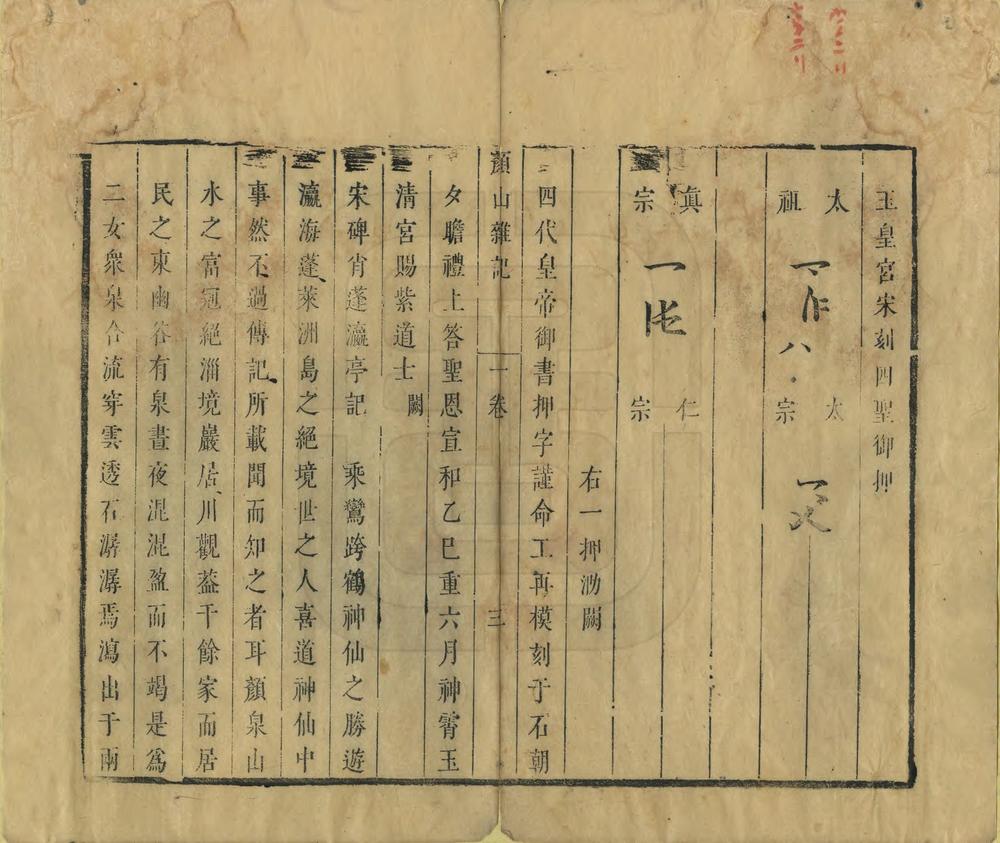 玉皇宮宋刻四聖御押
太祖
太宗
真宗
仁宗
右一押泐闕
四代皇帝御書押字謹命工再模刻于石朝
顏山雜記
卷一
三
夕瞻禮上答聖恩宣和乙巳重六月神霄玉
清宮賜紫道士闕
宋碑肖蓬瀛亭記　乘鸞跨鶴神仙之勝遊
瀛海蓬萊洲島之絕境世之人喜道神仙中
事然不過傳記所載聞而知之者耳顏泉山
水之富冠絕淄境巖居川觀葢千餘家而居
民之東幽谷有泉晝夜混混盈而不竭是爲
二女衆泉合流穿雲透石潺潺焉瀉出于兩